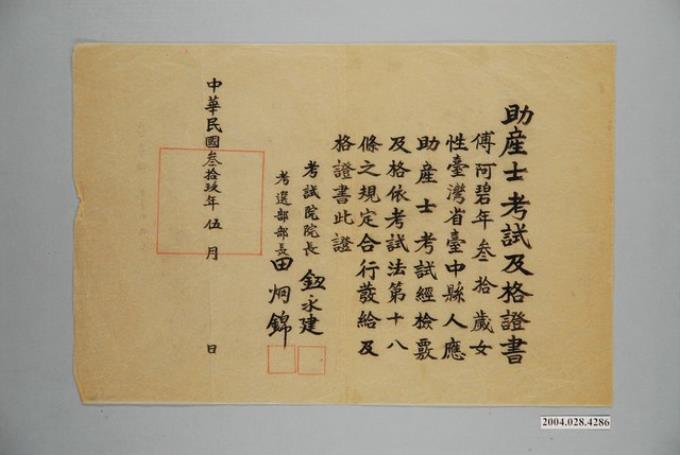 助産士考試及格證書
傅阿碧年叁拾歲女
性臺灣省臺中縣人應
助産士考試經檢覈
及格依考試法第十八
條之規定合行發給及
格證書此證
考試院院長 鈕永建
考選部部長 田炯錦
中華民國叁拾玖年伍月 日
2004.028.4286